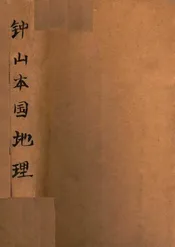 钟山本国地理